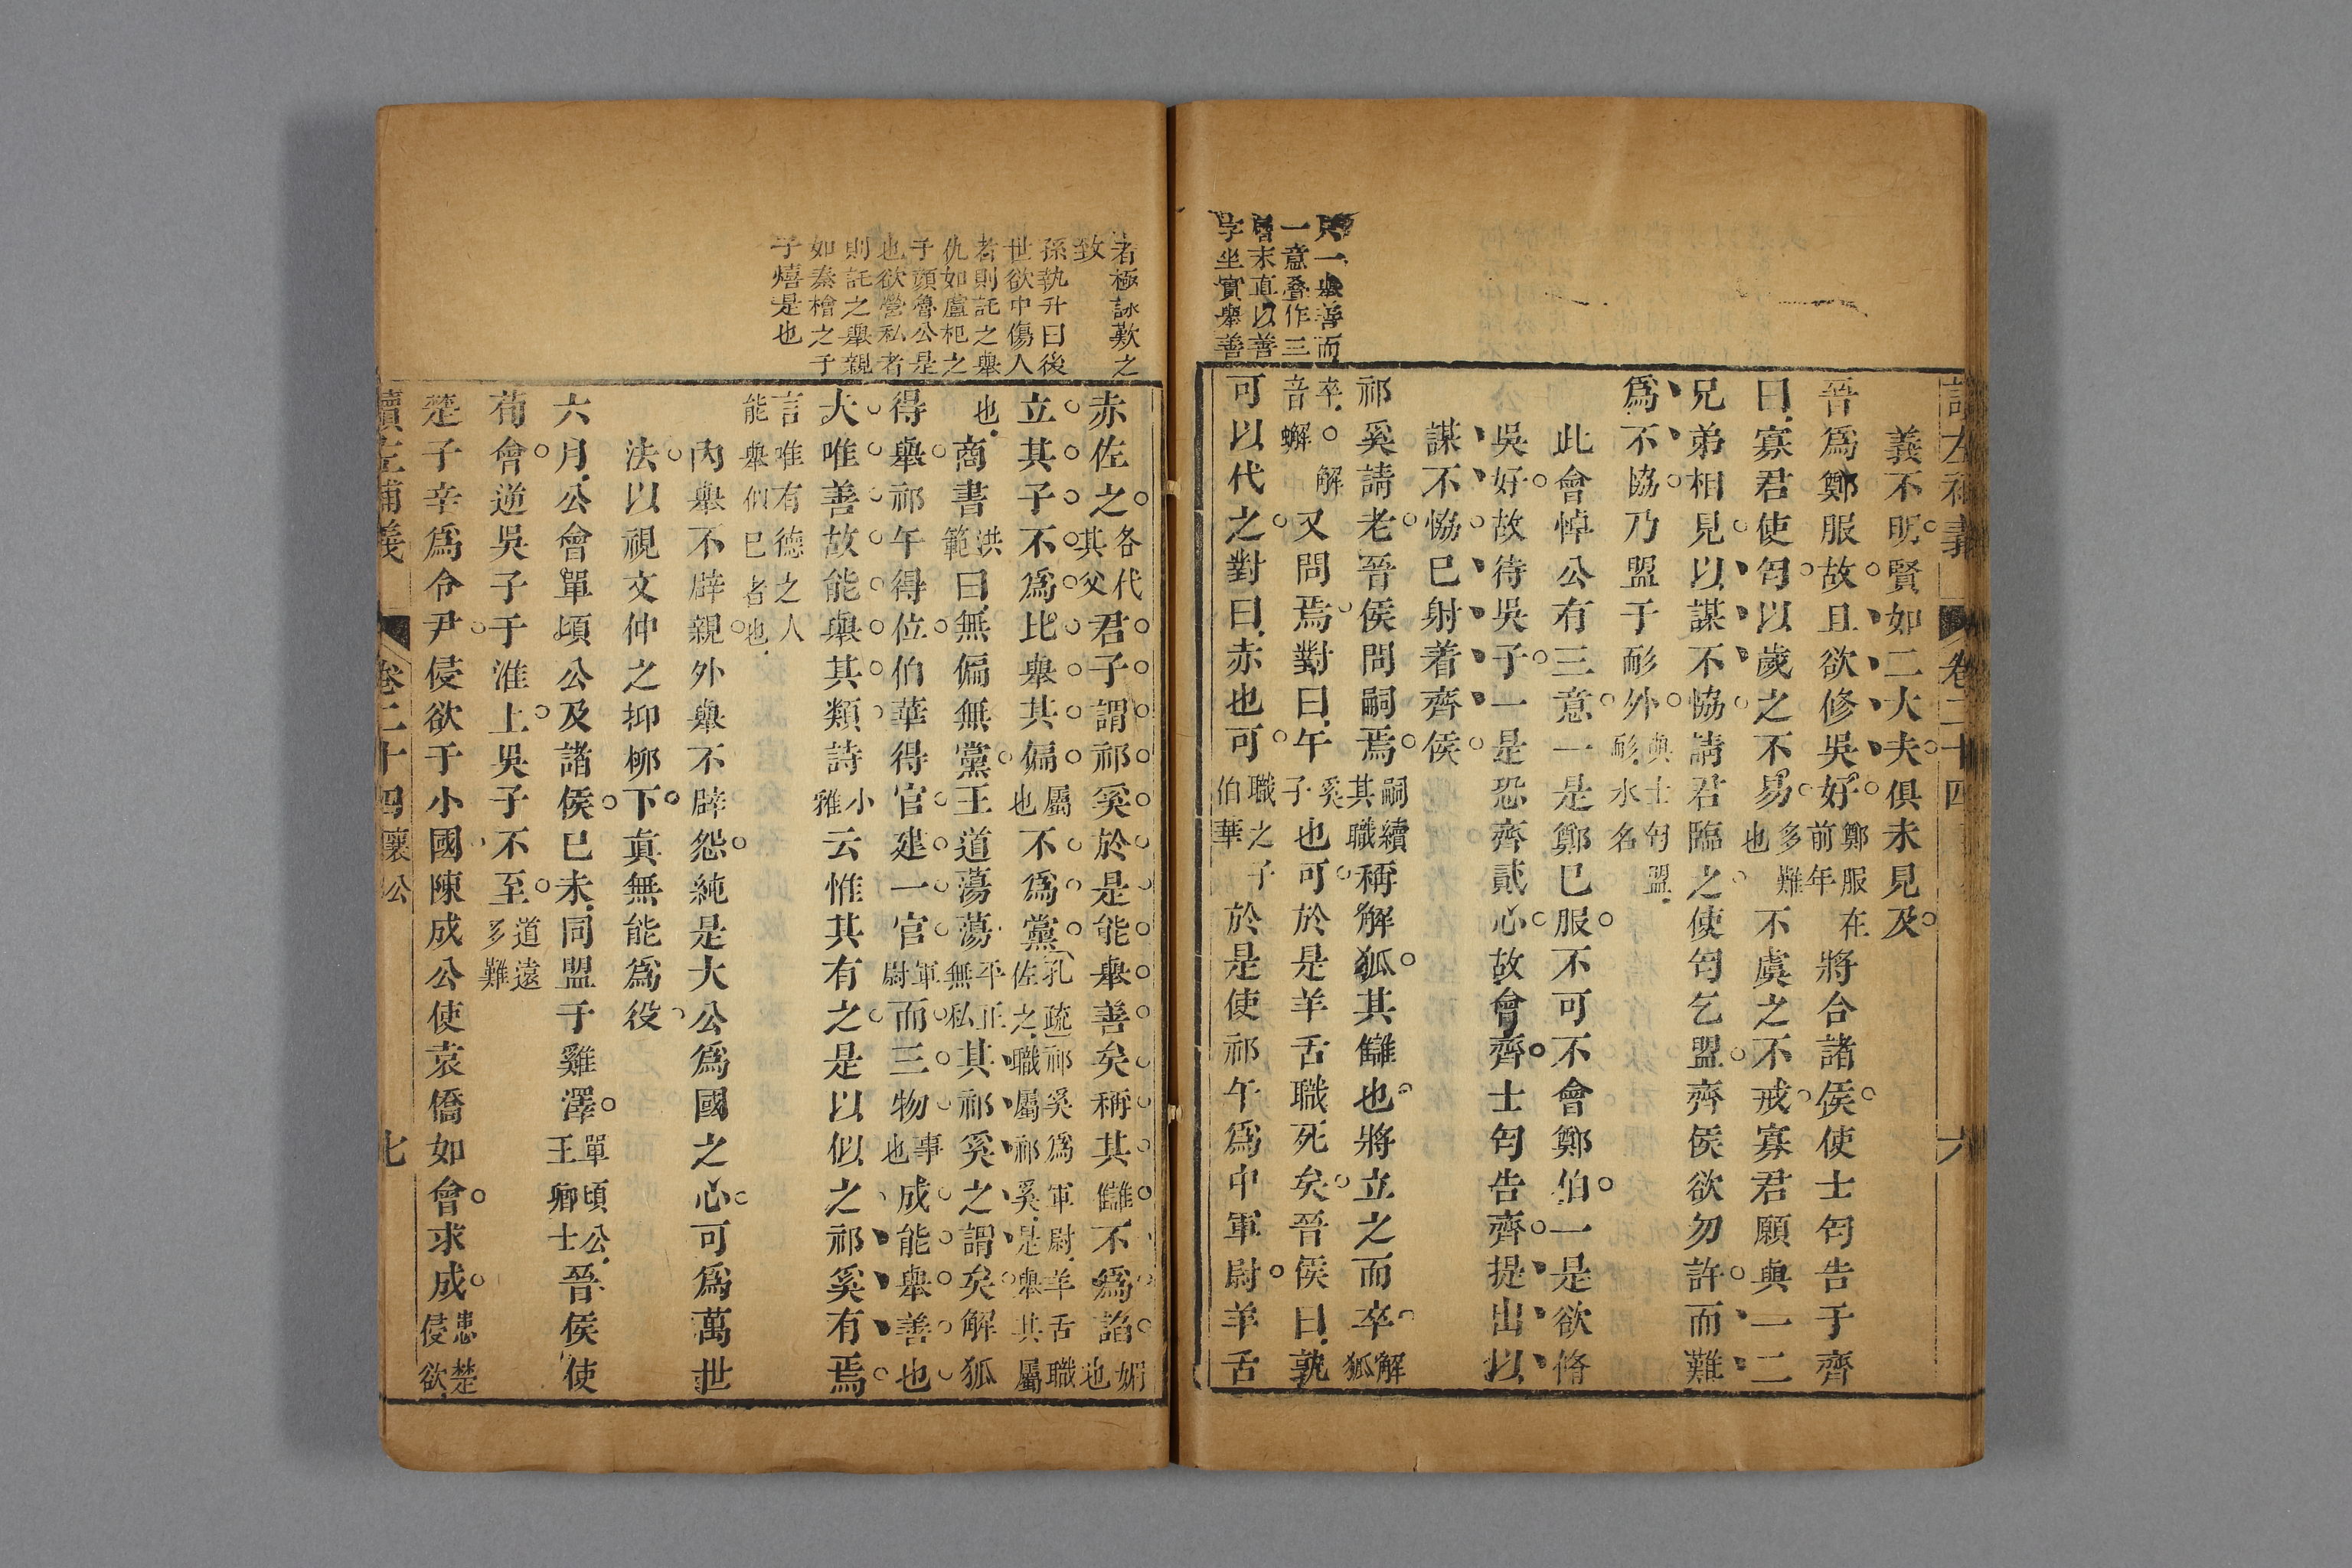 讀左補義
卷二十四
六
義不明賢如二大夫俱未見及
晉爲鄭服故且欲修吳好鄭服在前年將合諸侯使士匄告于齊
曰寡君使匄以歲之不易多難也不虞之不戒寡君願與一二
兄弟相見以謀不協請君臨之使匄乞盟齊侯欲勿許而難
爲不協乃盟于耏外與士匄盟耏水名
此會悼公有三意一是鄭已服不可不會鄭伯一是欲脩
吳好故待吳子一是恐齊貳心故會齊士匄告齊提出以
謀不協已射着齊侯
祁奚請老晉侯問嗣焉嗣續其職稱解狐其讎也將立之而卒解狐
卒解音蠏又問焉對曰午奚子也可於是羊舌職死矣晉侯曰孰
可以代之對曰赤也可職之子伯華於是使祁午爲中軍尉羊舌
只一舉善而
一意叠作三
層末直以善
字坐實舉善
者極詠歎之
致
孫執升曰後
世欲中傷人
者則託之舉
仇如盧杞之
于顔魯公是
也欲營私者
則託之舉親
如秦檜之于
子熺是也
赤佐之各代其父君子謂祁奚於是能舉善矣稱其讎不爲諂媚也
立其子不爲比舉其偏屬也不爲黨孔疏祁奚爲軍尉羊舌職佐之職屬祁奚是舉其屬
也商書洪範曰無偏無黨王道蕩蕩平正無私其祁奚之謂矣解狐
得舉祁午得位伯華得官建一官軍尉而三物事也成能舉善也
夫唯善故能舉其類詩小雅云惟其有之是以似之祁奚有焉
言唯有德之人能舉似已者也
內舉不辟親外舉不辟怨純是大公爲國之心可爲萬世
法以視文仲之抑柳下眞無能爲役
六月公會單頃公及諸侯已未同盟于雞澤單頃公王卿士晉侯使
荀會逆吳子于淮上吳子不至道遠多難
楚子辛爲令尹侵欲于小國陳成公使袁僑如會求成患楚侵欲
讀左補義
卷二十四
襄公
七